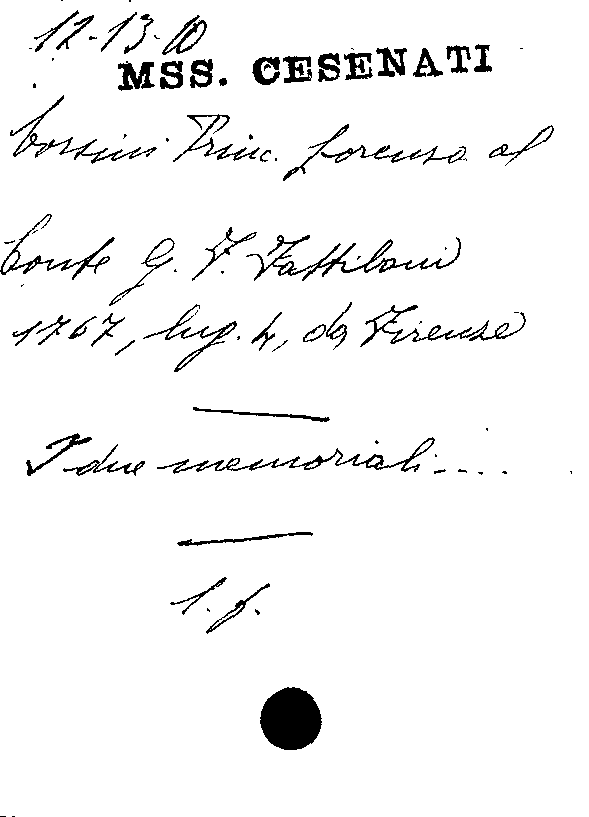 12-13-10
MSS. CESENATI
Corsini Princ. Lorenzo al
Conte G. F. Fattiboni
1767, lug. 4, da Firenze
I due memoriali....
l. f.